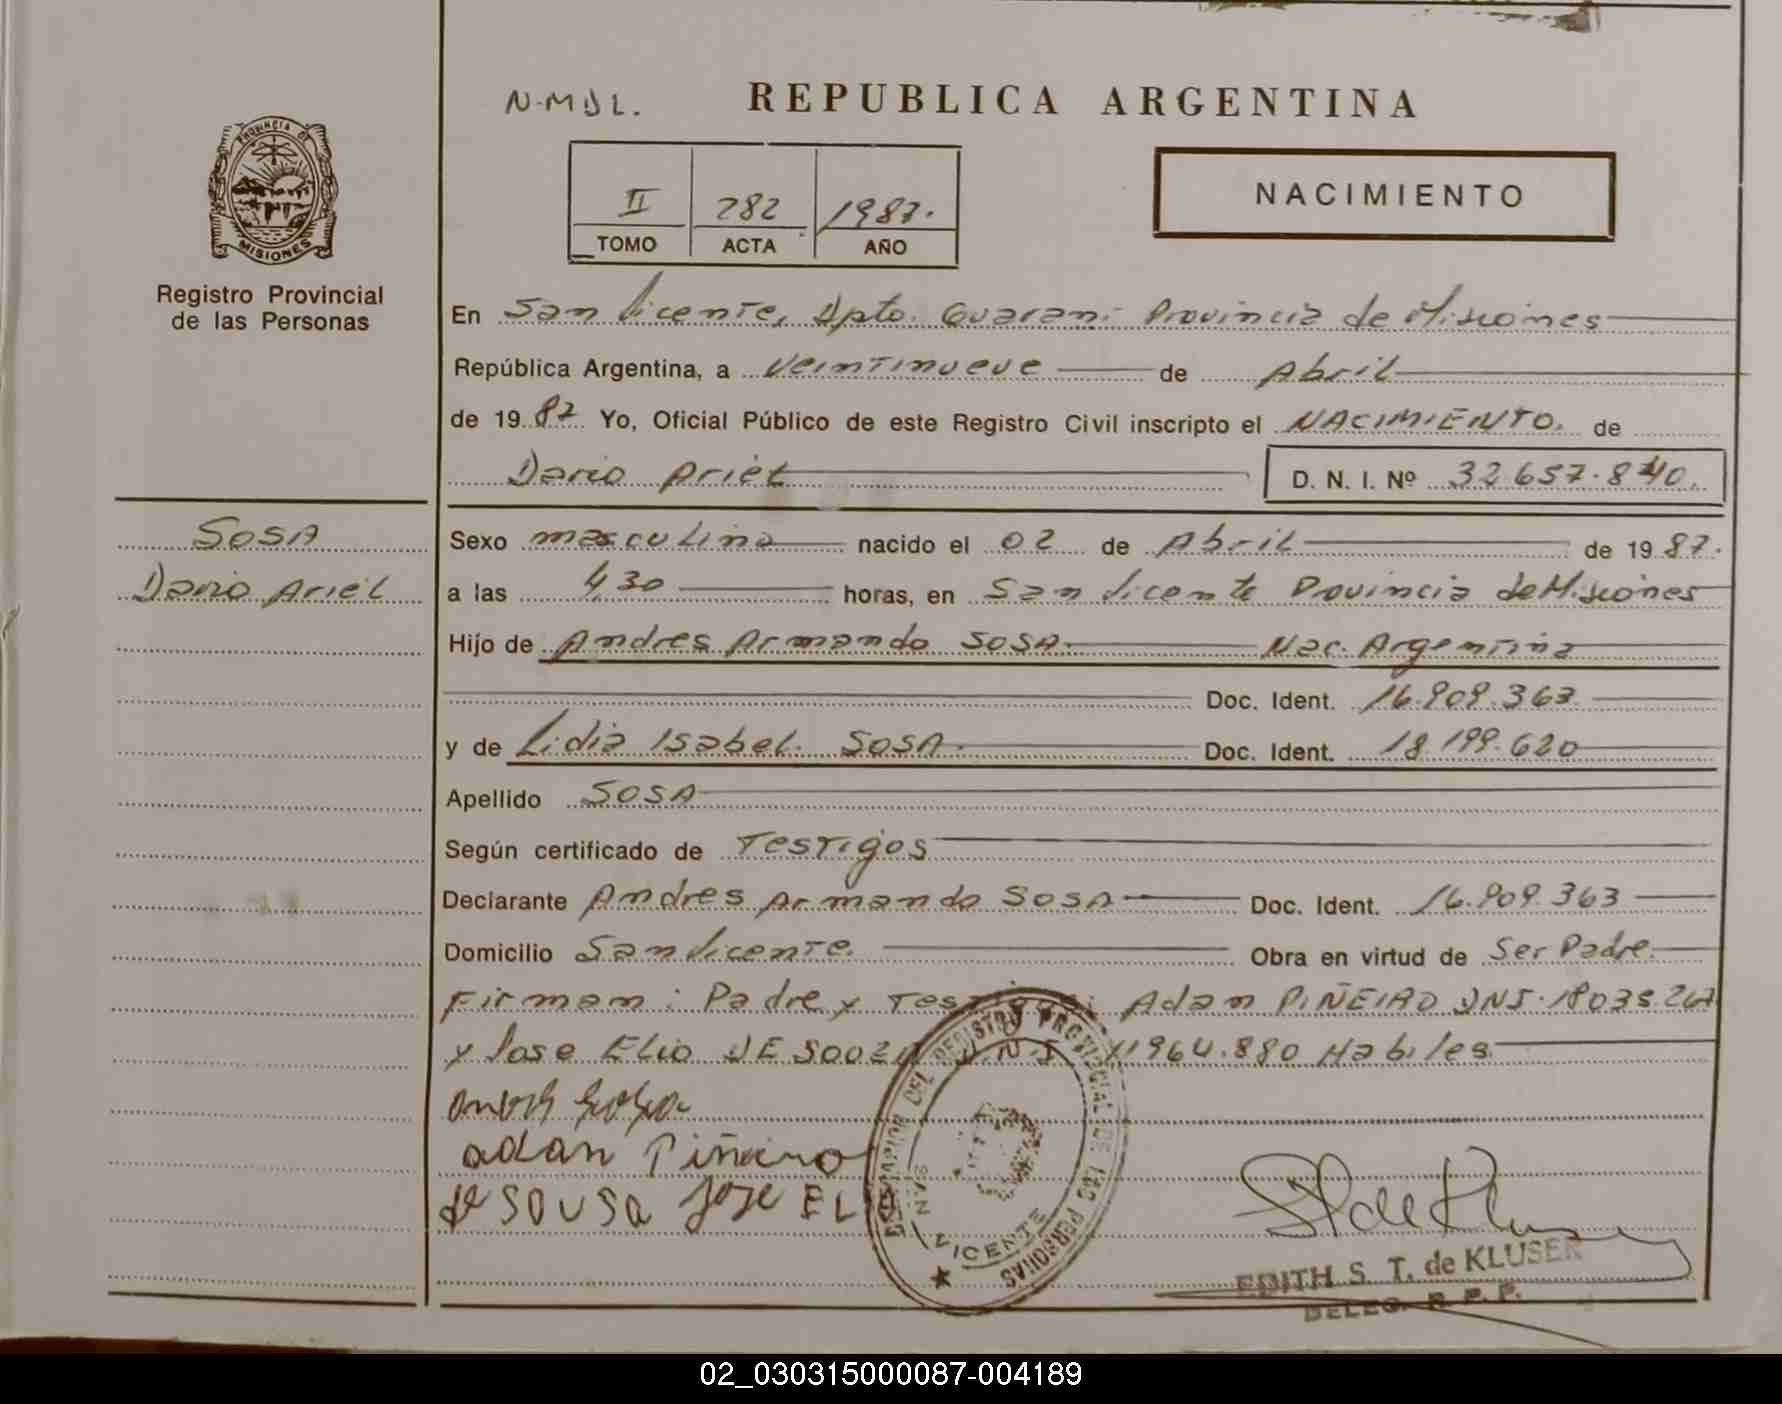 N·MDL.
REPUBLICA ARGENTINA
PROVINCIA DE
MISIONES
Registro Provincial
de las Personas
II 282 1987.
TOMO ACTA AÑO
NACIMIENTO
En San Vicente, Dpto. Guarani Provincia de Misiones
República Argentina, a Veintinueve de Abril
de 1987 Yo, Oficial Público de este Registro Civil inscripto el NACIMIENTO. de
Dario Ariel D. N. I. Nº 32.657.840.
SOSA
Dario Ariel
Sexo masculino nacido el 02 de Abril de 1987.
a las 4,30 horas, en San Vicente Provincia de Misiones
Hijo de Andres Armando SOSA. Nac. Argentina
Doc. Ident. 16.909.363
y de Lidia Isabel. SOSA. Doc. Ident. 18.199.620
Apellido SOSA
Según certificado de Testigos
Declarante Andres Armando SOSA Doc. Ident. 16.909.363
Domicilio San Vicente. Obra en virtud de Ser Padre.
Firman: Padre y Testigos: Adan PIÑEIRO DNI. 18035.267
y Jose Elio DE SOUZA D.N.I. 964.880 Habiles
adan Piñeiro
de SOUSA Jose ELIO
REGISTRO PROVINCIAL DE LAS PERSONAS
SAN VICENTE
EDITH S. T. de KLUSER
DELEG. R. P. P.
02_030315000087-004189